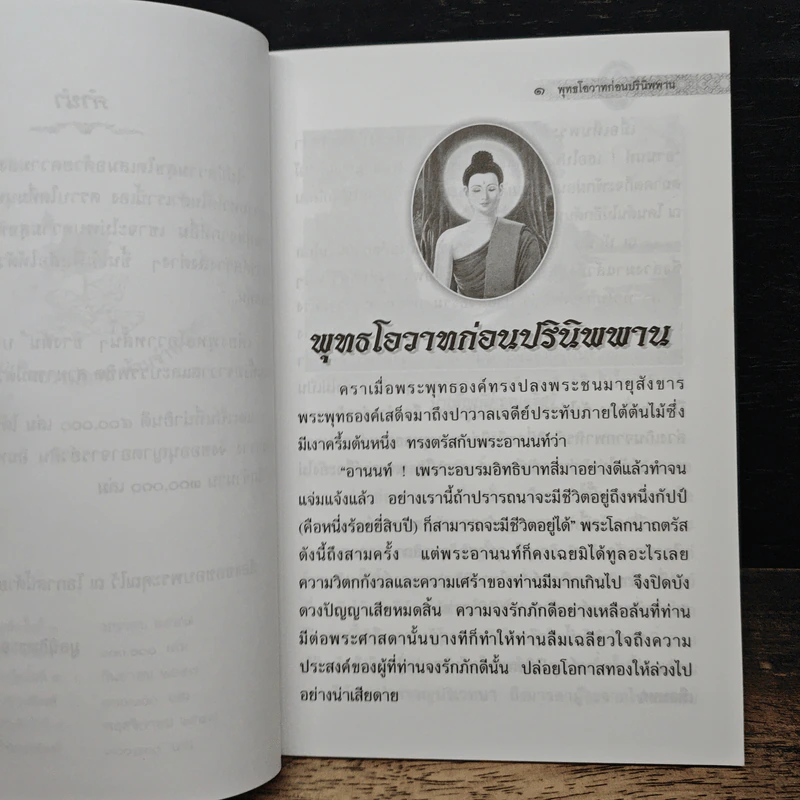 ๑ พุทธโอวาทก่อนปรินิพพาน
พุทธโอวาทก่อนปรินิพพาน
คราเมื่อพระพุทธองค์ทรงปลงพระชนมายุสังขาร
พระพุทธองค์เสด็จมาถึงปาวาลเจดีย์ประทับภายใต้ต้นไม้ซึ่ง
มีเงาครึ้มต้นหนึ่ง ทรงตรัสกับพระอานนท์ว่า
"อานนท์ ! เพราะอบรมอิทธิบาทสี่มาอย่างดีแล้วทำจน
แจ่มแจ้งแล้ว อย่างเรานี้ถ้าปรารถนาจะมีชีวิตอยู่ถึงหนึ่งกัปป์
(คือหนึ่งร้อยยี่สิบปี) ก็สามารถจะมีชีวิตอยู่ได้" พระโลกนาถตรัส
ดังนี้ถึงสามครั้ง แต่พระอานนท์ก็คงเฉยมิได้ทูลอะไรเลย
ความวิตกกังวลและความเศร้าของท่านมีมากเกินไป จึงปิดบัง
ดวงปัญญาเสียหมดสิ้น ความจงรักภักดีอย่างเหลือล้นที่ท่าน
มีต่อพระศาสดานั้นบางทีก็ทำให้ท่านลืมเฉลียวใจถึงความ
ประสงค์ของผู้ที่ท่านจงรักภักดีนั้น ปล่อยโอกาสทองให้ล่วงไป
อย่างน่าเสียดาย